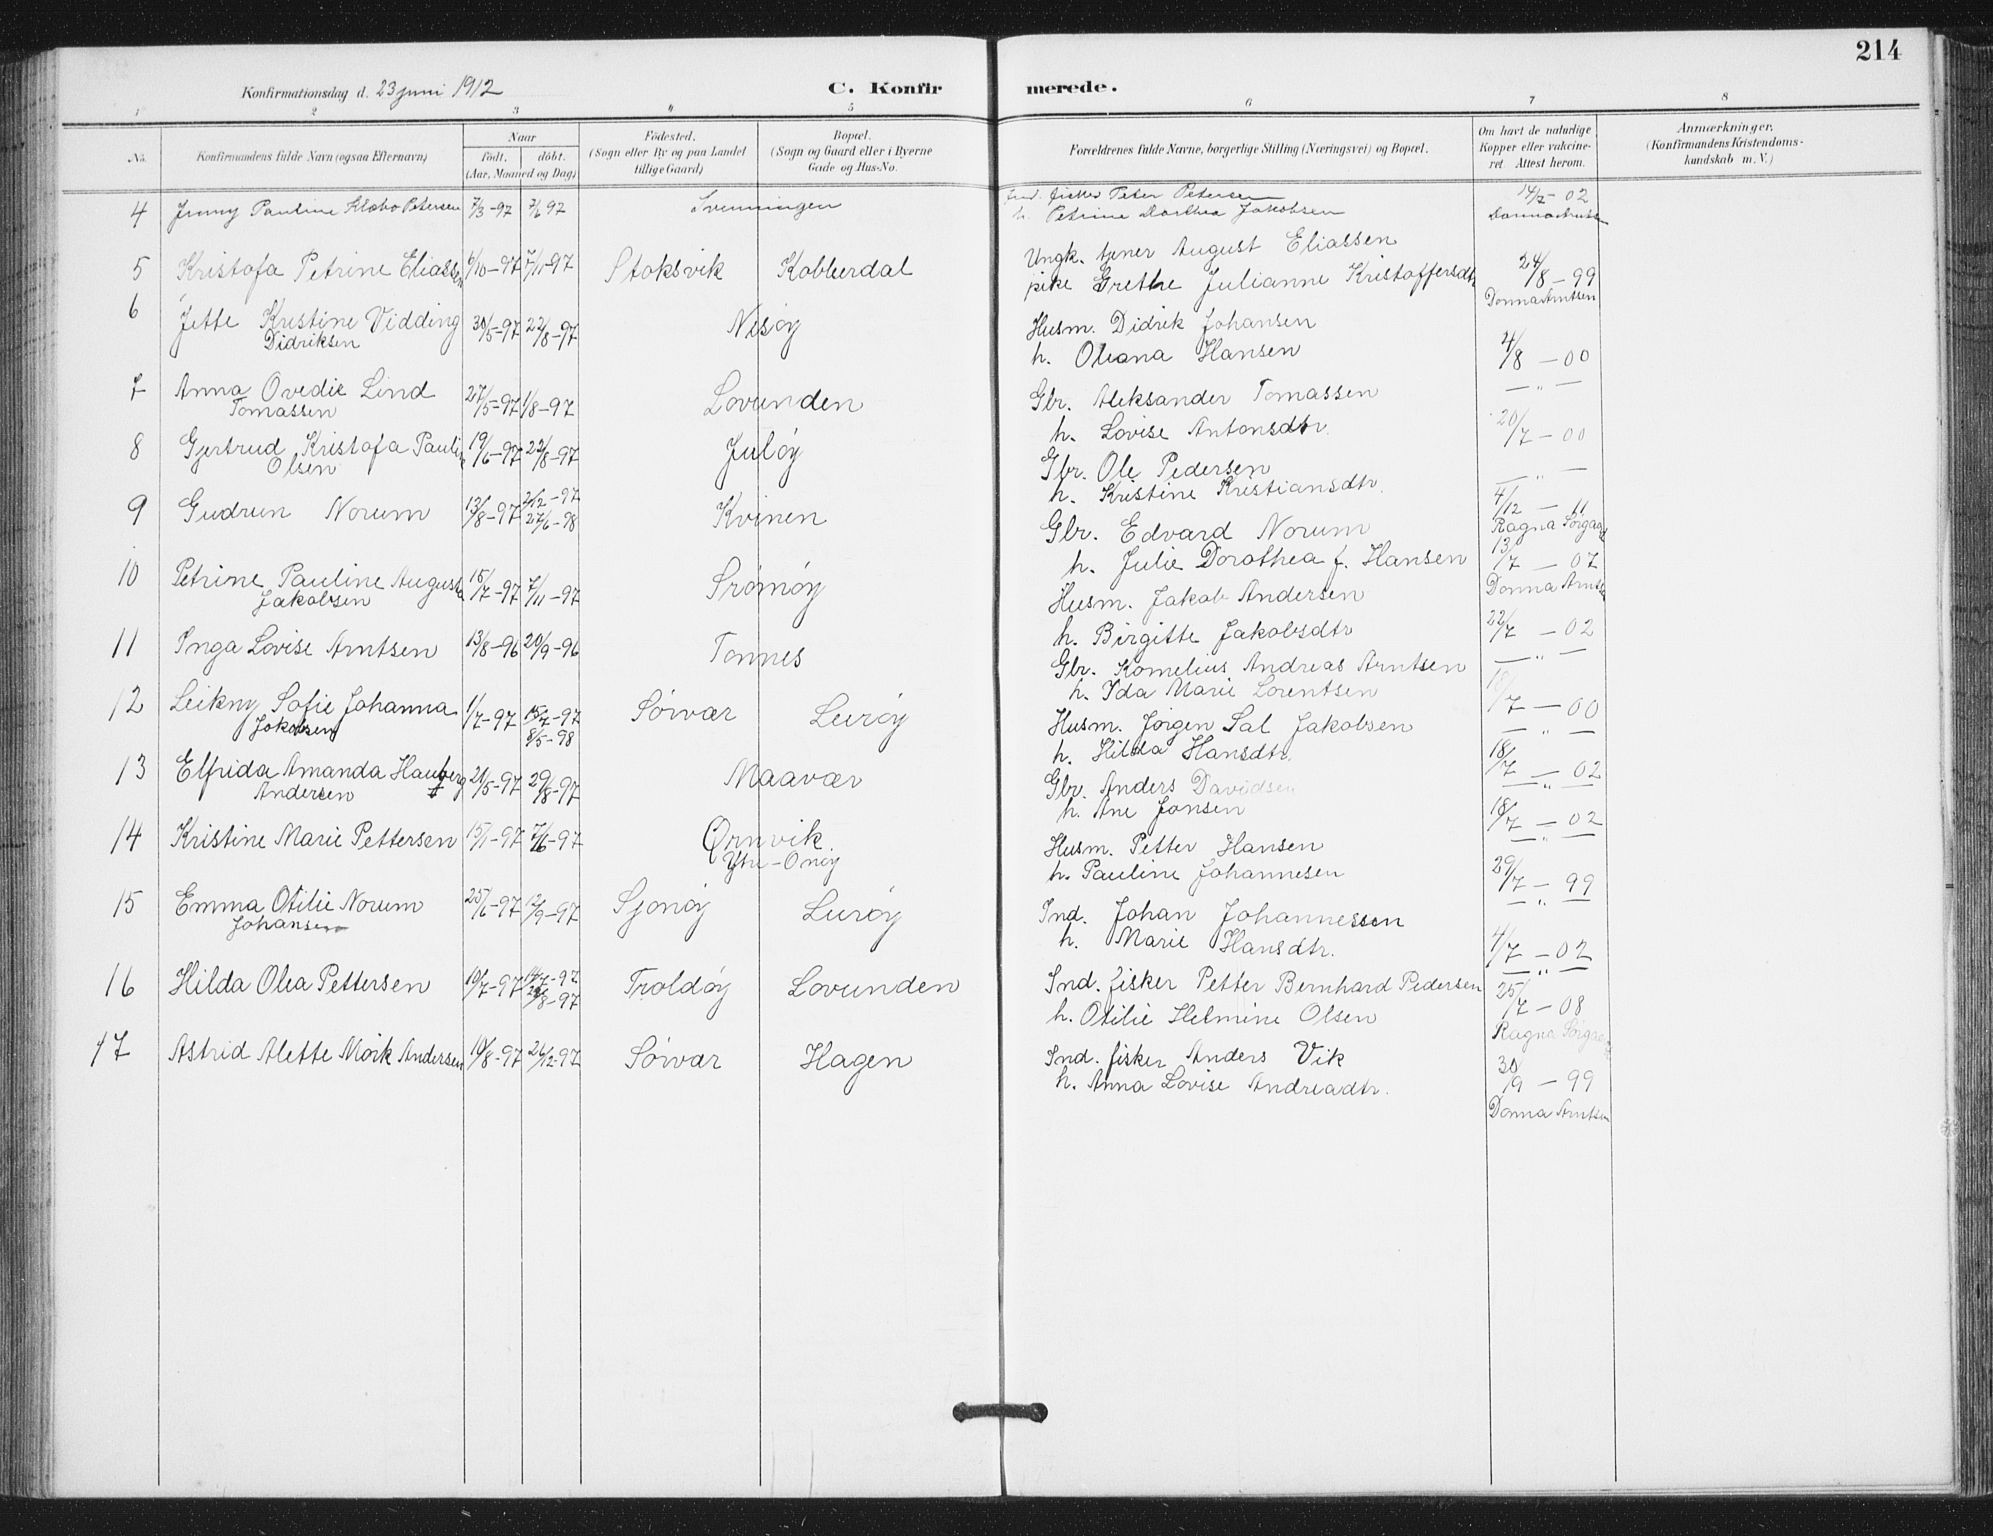 214
Konfirmationsdag d. 23 juni 1912
C. Konfirmerede.
1 2 3 4 5 6 7 8
No.
Konfirmandens fulde Navn (ogsaa Efternavn)
Naar
født. døbt.
(Aar, Maaned og Dag)
Födested.
(Sogn eller By og paa Landet
tillige Gaard)
Bopæl.
(Sogn og Gaard eller i Byerne
Gade og Hus-No.
Forældrenes fulde Navne, borgerlige Stilling (Næringsvei) og Bopæl.
Om havt de naturlige
Kopper eller vakcine-
ret. Attest herom.
Anmærkninger.
(Konfirmandens Kristendoms-
kundskab m. V.)
4 Jenny Pauline Klæbo Petersen 7/3-97 7/6 97 Svenningen Ind. fisker Peter Petersen 14/7-02
h. Petrine Dorthea Jakobsen
5 Kristofa Petrine Eliassen 6/10-97 7/11-97 Stoksvik Kobberdal Ungk. tjener August Eliassen 24/8-99
pike Grethe Julianne Kristoffersdtr Donna Arntsen
6 Jette Kristine Vidding 30/5-97 22/8-97 Nesøy Husm. Didrik Johansen 4/8-00
Didriksen h. Oleana Hansen — " —
7 Anna Ovedie Lind 27/5-97 1/8-97 Lovunden Gbr. Aleksander Tomassen 20/7-00
Tomassen h. Lovise Antonsdtr. — " —
8 Gjertrud Kristofa Pauline 19/6-97 22/8-97 Juløy Gbr. Ole Pedersen 4/12-11
Olsen h. Kristine Kristiansdtr. Ragna Sørgaard
9 Gudrun Norum 13/8-97 2/12-97 Kvinen Gbr. Edvard Norum 13/7-07
27/6-98 h. Julie Dorothea f. Hansen Donna Arntsen
10 Petrine Pauline Augusta 15/7-97 7/11-97 Srömöy Husm. Jakob Andersen 22/7-02
Jakobsen h. Birgitte Jakobsdtr — " —
11 Inga Lovise Arntsen 13/8-96 20/9-96 Tonnes Gbr. Kornelius Andreas Arntsen 18/7-00
h. Ida Marie Lorentsen — " —
12 Leikny Sofie Johanna 1/7-97 18/7-97 Sörvær Luröy Husm. Jørgen Sal Jakobsen 18/7-02
Jakobsen 8/5-98 h. Hilda Hansdtr. — " —
13 Elfrida Amanda Hauberg 21/5-97 29/8-97 Maavær Gbr. Anders Davidsen 18/7-02
Andersen h. Ane Jonsen — " —
14 Kristine Marie Pettersen 15/1-97 7/6-97 Ørnvik. Husm. Petter Hansen 29/7-99
Ytre-Onøy h. Pauline Johannesen — " —
15 Emma Otilie Norum 25/6-97 12/9-97 Sjonøy Luröy Ind. Johan Johannessen 4/7-02
Johansen h. Marie Hansdtr. — " —
16 Hilda Olea Pettersen 10/7-97 14/7-97 Troldöy Lovunden Ind. fisker Petter Bernhard Pedersen 25/7-08
29/8-97 h. Otilie Helmine Olsen Ragna Sørgaard
17 Astrid Alette Moik Andersen 10/8-97 26/12-97 Sörvær Hagen Ind. fisker Anders Vik 30/9-99
h. Anna Lovise Andreadtr. Donna Arntsen